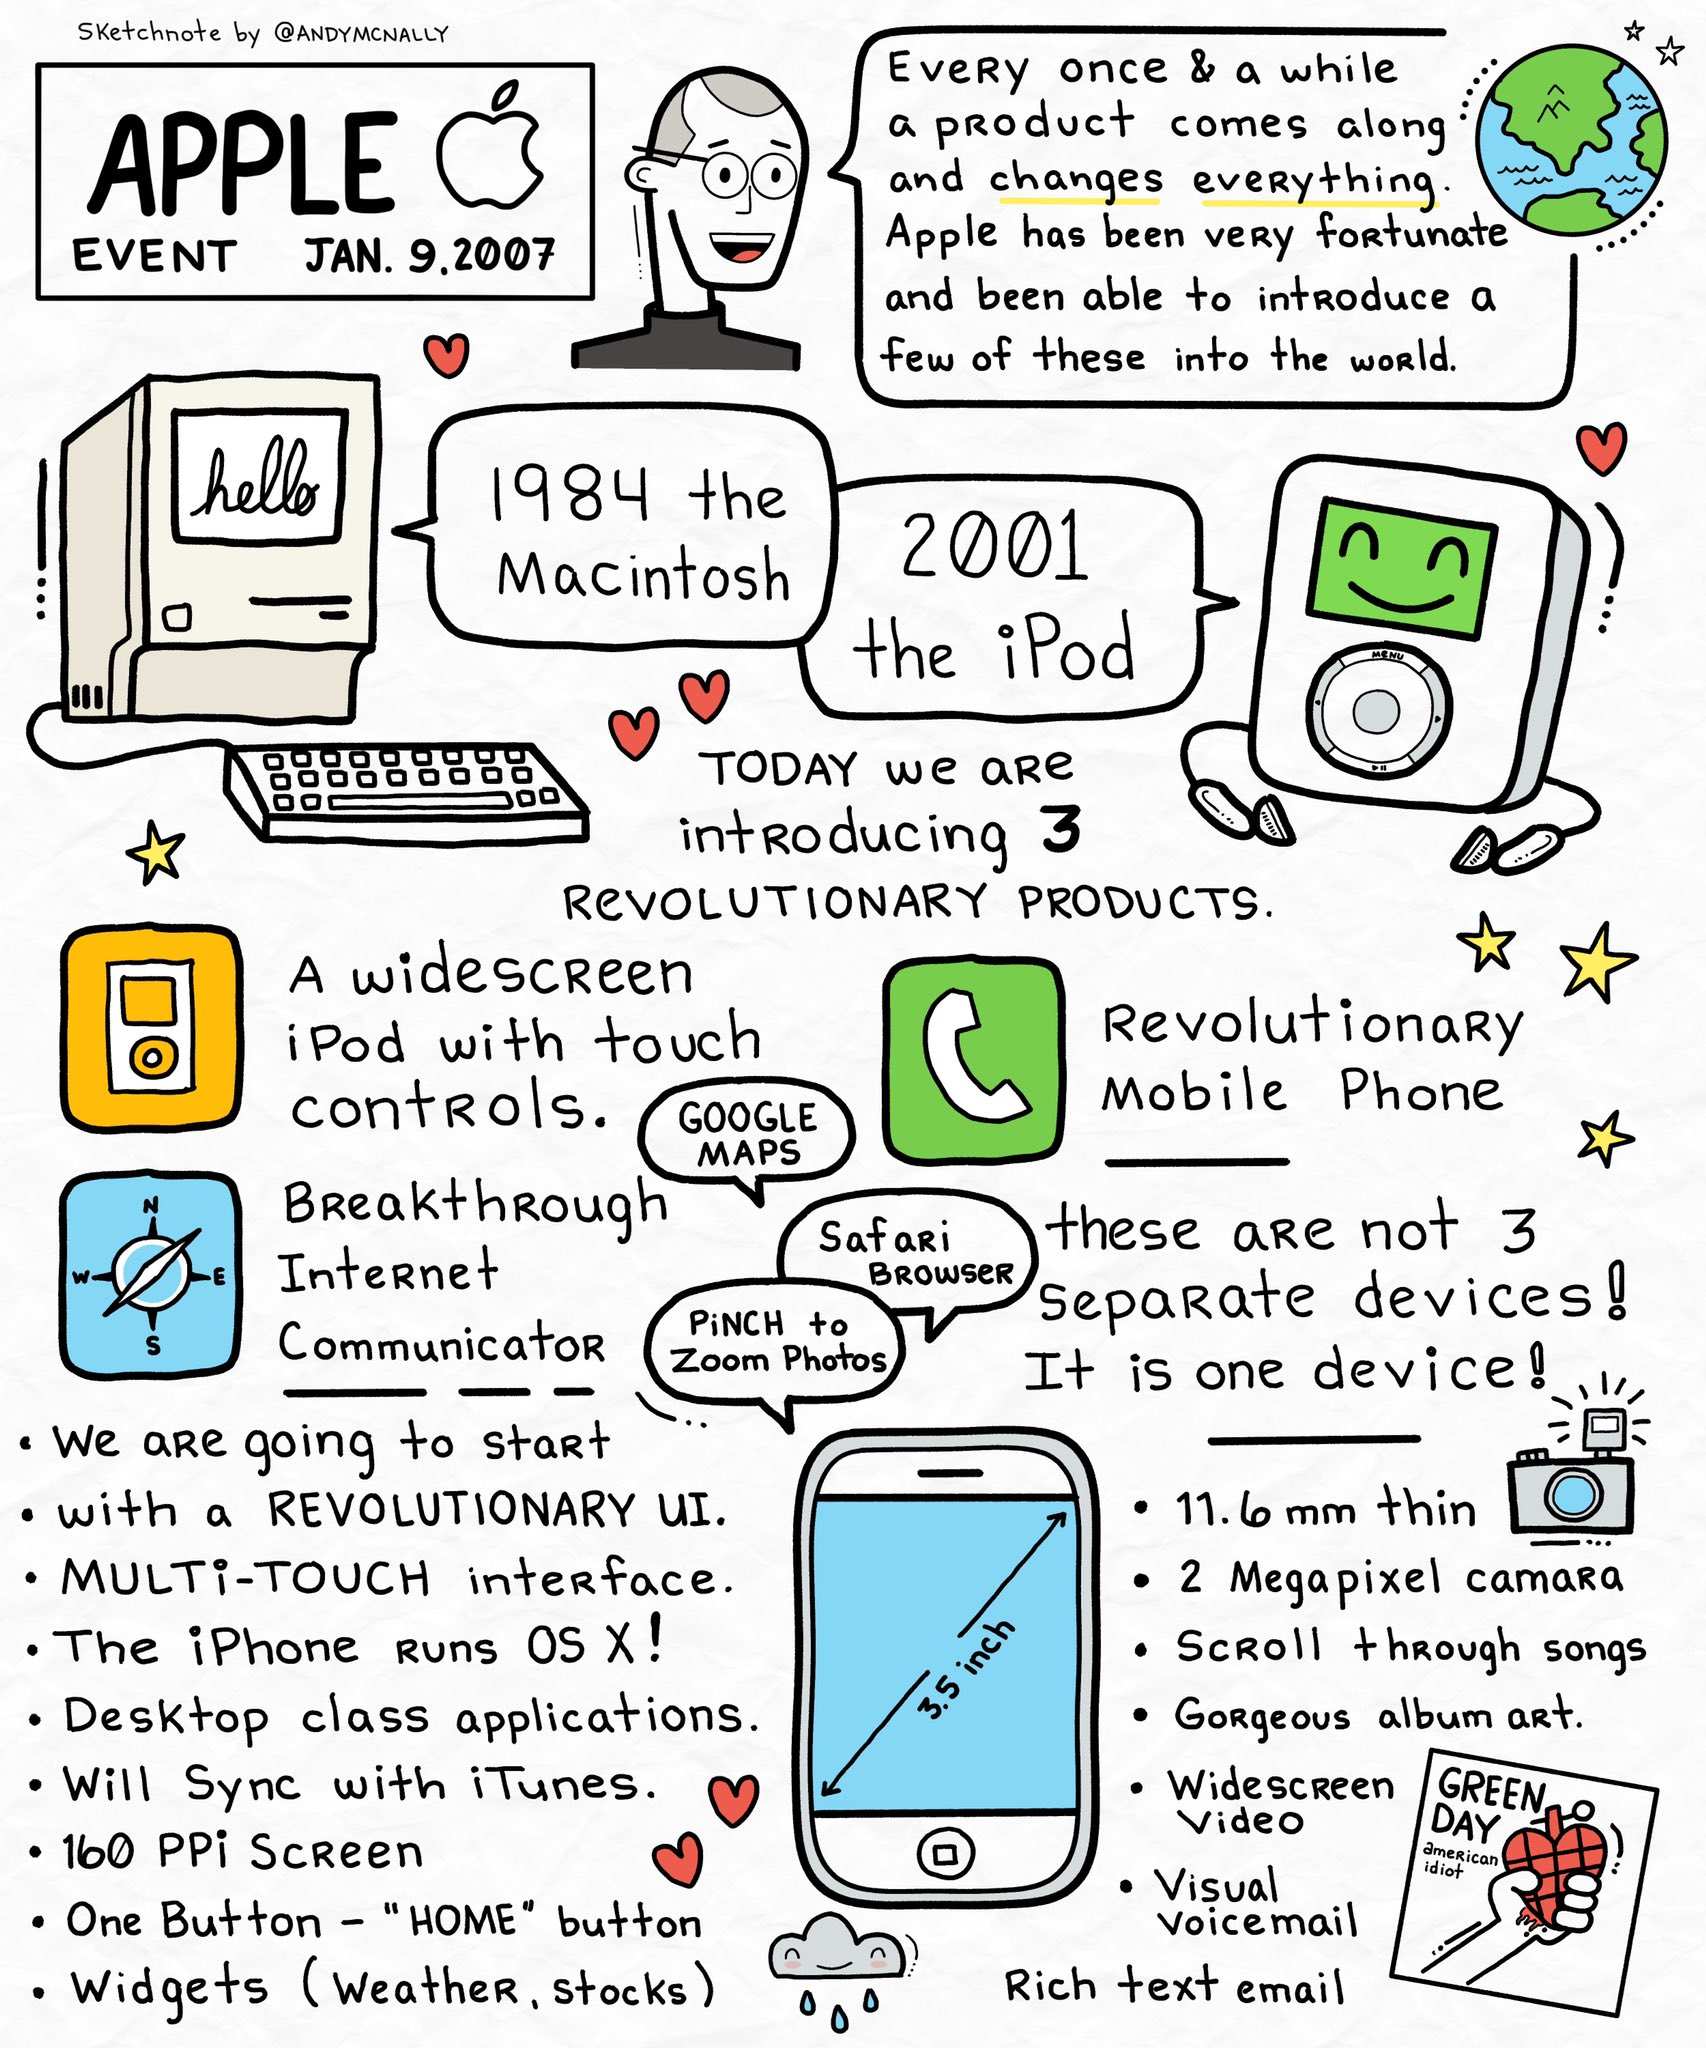 Sketchnote by @ANDYMCNALLY
APPLE
EVENT JAN. 9, 2007
Every once & a while
a product comes along
and changes everything.
Apple has been very fortunate
and been able to introduce a
few of these into the world.
hello
1984 the
Macintosh
2001
the iPod
MENU
TODAY we are
introducing 3
REVOLUTIONARY PRODUCTS.
A widescreen
iPod with touch
controls.
Revolutionary
Mobile Phone
GOOGLE
MAPS
N
W E
S
Breakthrough
Internet
Communicator
Safari
BROWSER
PiNCH to
Zoom Photos
these are not 3
separate devices!
It is one device!
• We are going to start
• with a REVOLUTIONARY UI.
• MULTi-TOUCH interface.
• The iPhone runs OS X!
• Desktop class applications.
• Will Sync with iTunes.
• 160 PPi Screen
• One Button - "HOME" button
• Widgets (Weather, stocks)
3.5 inch
• 11.6 mm thin
• 2 Megapixel camara
• Scroll through songs
• Gorgeous album art.
• Widescreen
Video
• Visual
voicemail
Rich text email
GREEN
DAY
american
idiot